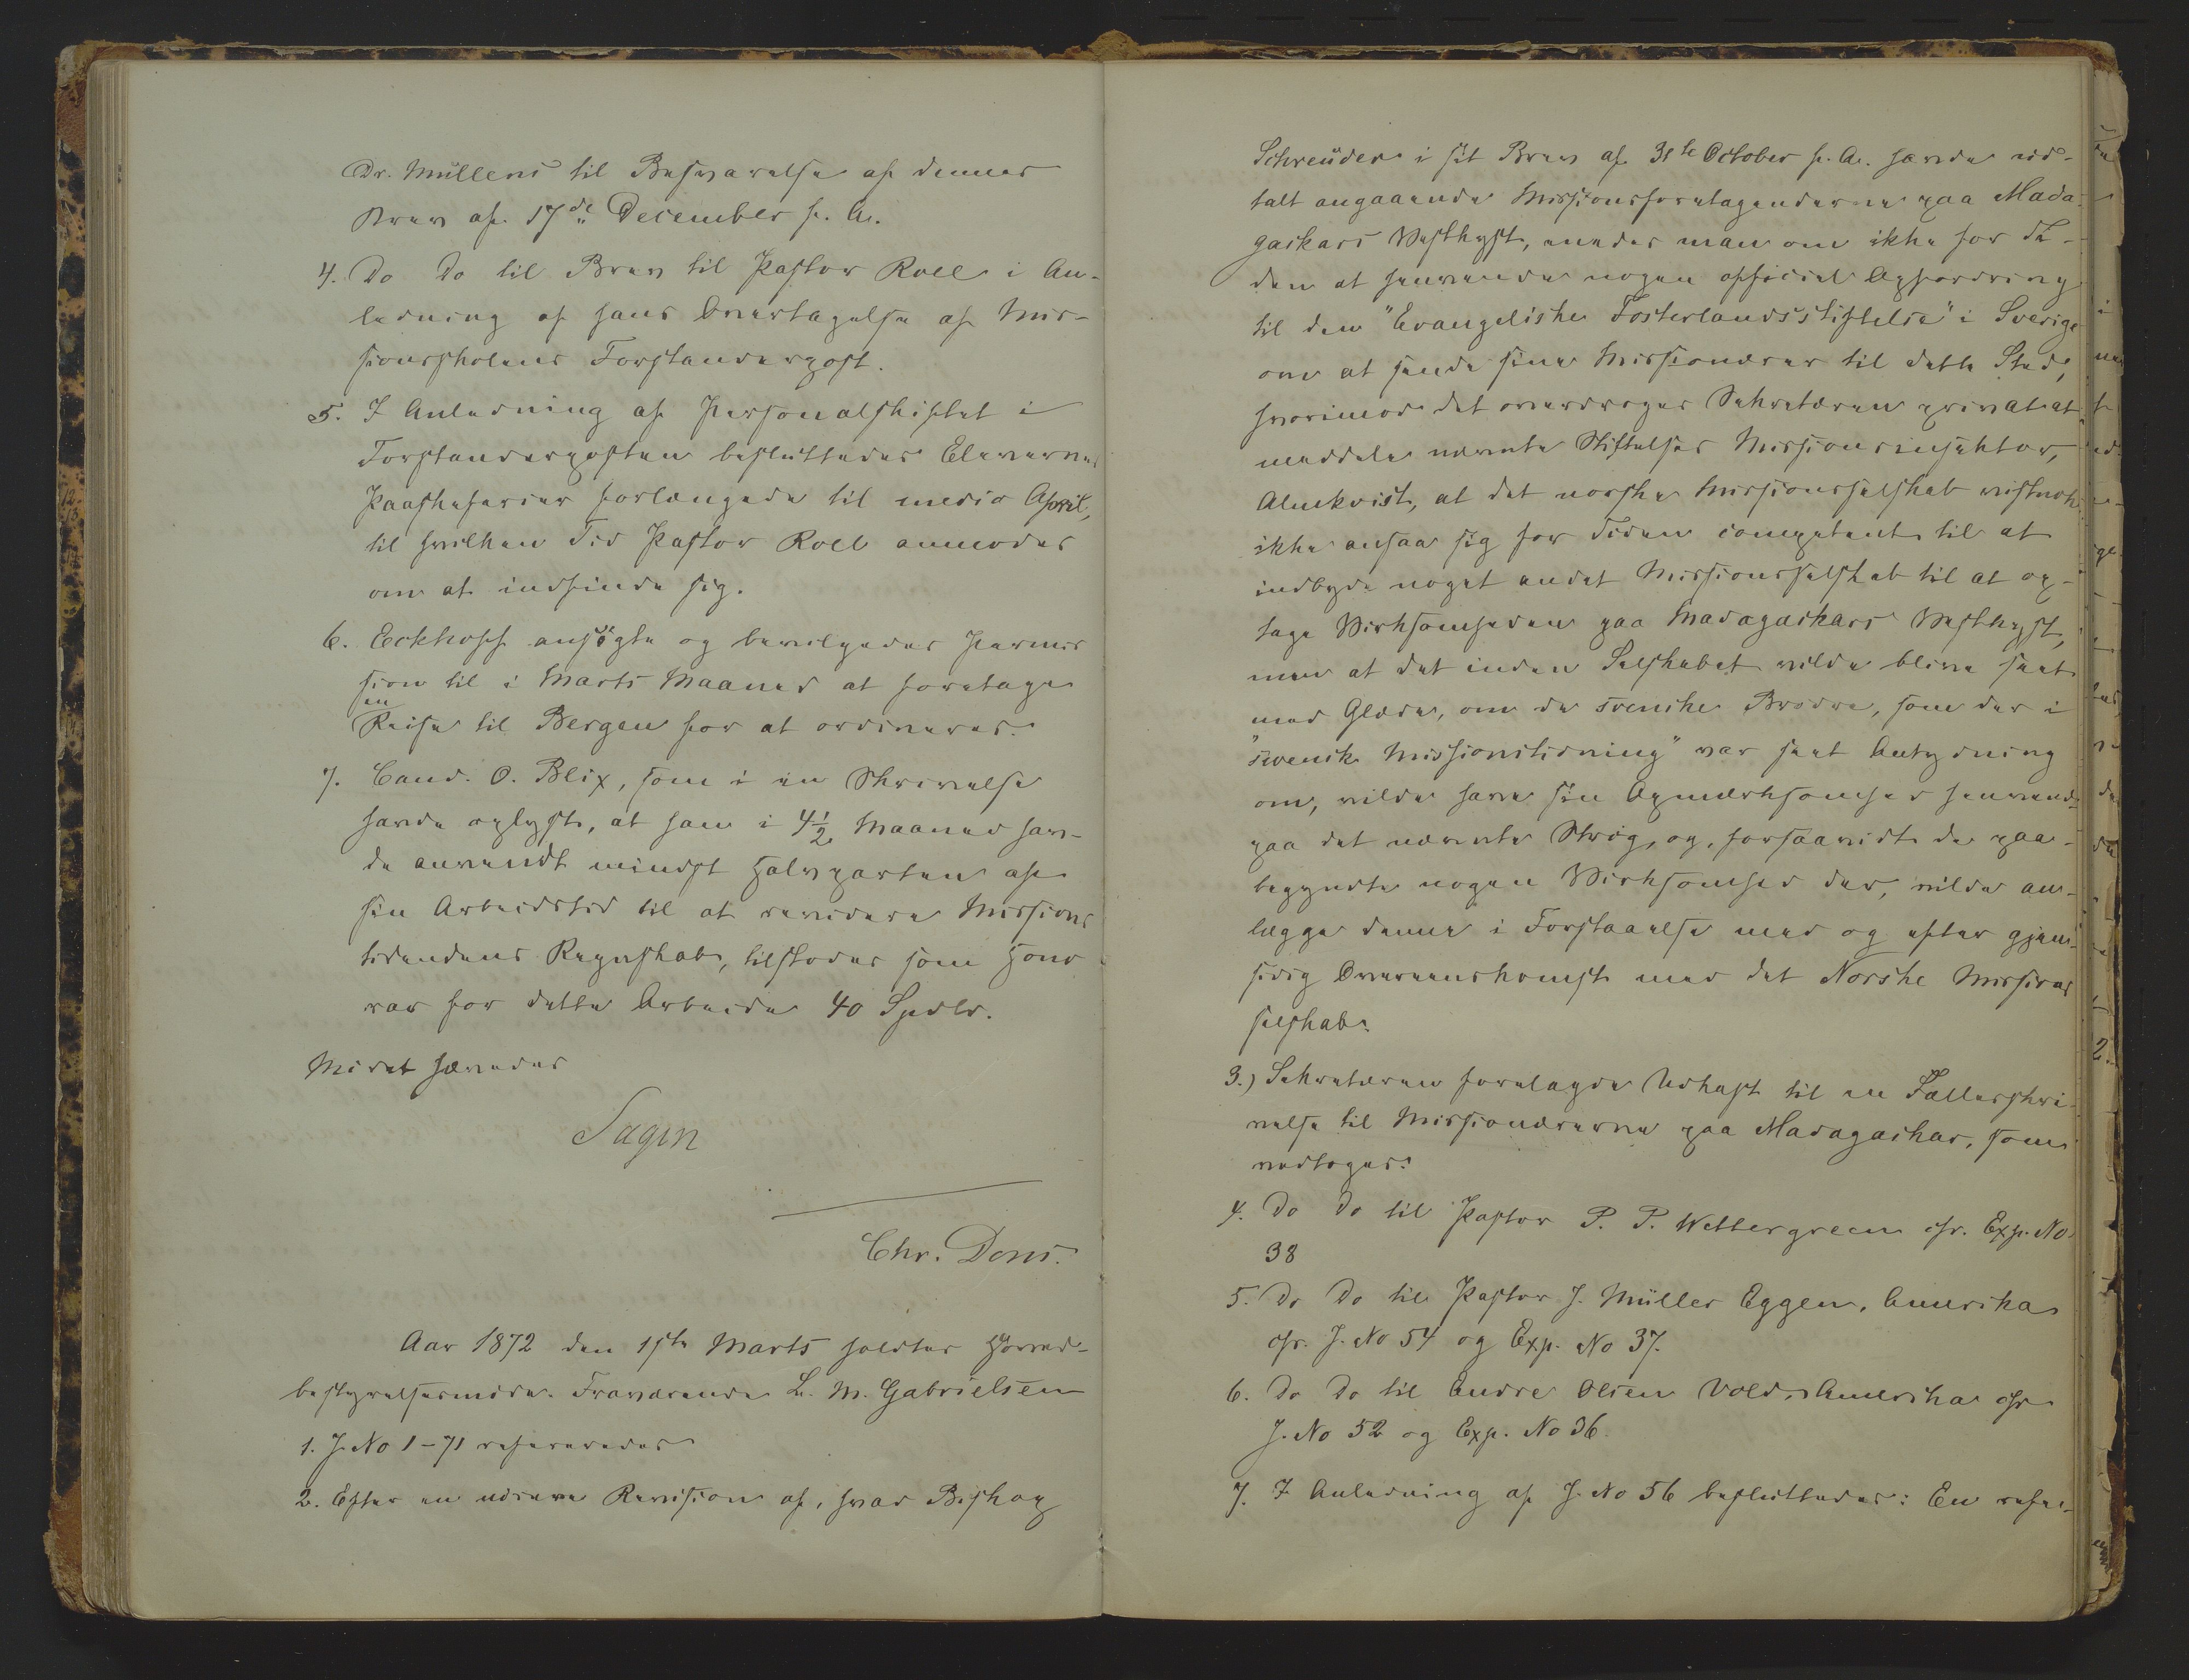 Dr. Müllens til Besvarelse af dennes
Brev af 17de December f. A.
4. Do Do til Brev til Pastor Roll i An-
ledning af hans Overtagelse af Mis-
sionsskolens Forstanderpost.
5. I Anledning af Personalskiftet i
Forstanderposten besluttedes Elevernes
Paaskeferier forlængede til medio April,
til hvilken Tid Pastor Roll anmodes
om at indfinde sig.
6. Eckhoff ansøgte og bevilgedes Permis
sion til i Marts Maaned at foretage
en
Reise til Bergen for at ordineres.
7. Cand. O. Blix, som i en Skrivelse
havde oplyst, at han i 4½ Maaned hav-
de anvendt mindst Halvparten af
sin Arbeidstid til at revidere Missions
tidendens Regnskab, tilstodes som Hono
rar for dette Arbeide 40 Spdlr.
Mødet hævedes
Sagen
Chr. Dons.
Aar 1872 den 1ste Marts holdtes Hoved-
bestyrelsesmøde. Fraværende L. M. Gabrielsen
1. J. No 1-71 refereredes
2. Efter en udsøre Revision af, hvad Biskop
Schreuder i sit Brev af 31te October f. A. havde ud-
talt angaaende Missionsforetagenderne paa Mada-
gaskars Vestkyst, enedes man om ikke for Ti-
den at henvende nogen official Opfordring
til den "Evangeliske Fosterlandsstiftelse" i Sverige
om at sende sine Missionærer til dette Sted,
hvorimod det overdroges Sekretæren privat at
meddele nævnte Stiftelses Missionsinspektor,
Almkvist, at det norske Missionsselskab vistnok
ikke ansaa sig for Tiden competent til at
indbyde noget andet Missionsselskab til at op-
tage Virksomheden paa Madagaskars Vestkyst,
men at det inden Selskabet vilde blive seet
med Glæde, om de svenske Brødre, som der i
"svensk Missionstidning" var seet Antydning
om, vilde have sin Opmærksomhed henvendt
paa det nævnte Strøg, og, forsaavidt de paa-
begyndte nogen Virksomhed der, vilde an-
lægge denne i Forstaaelse med og efter gjen-
sidig Overenskomst med det Norske Missions
selskab.
3.) Sekretæren forelagde Udkast til en Fællesskri-
velse til Missionærerne paa Madagaskar, som
vedtoges.
4. Do Do til Pastor P. P. Wettergreen cfr. Exp. No
38
5. Do Do til Pastor J. Müller Eggen, Amerika
cfr. J. No 54 og Exp. No 37.
6. Do Do til Andre Olsen Vold, Amerika cfr
J. No 52 og Exp. No 36.
7. I Anledning af J. No 56 besluttedes: En refe-